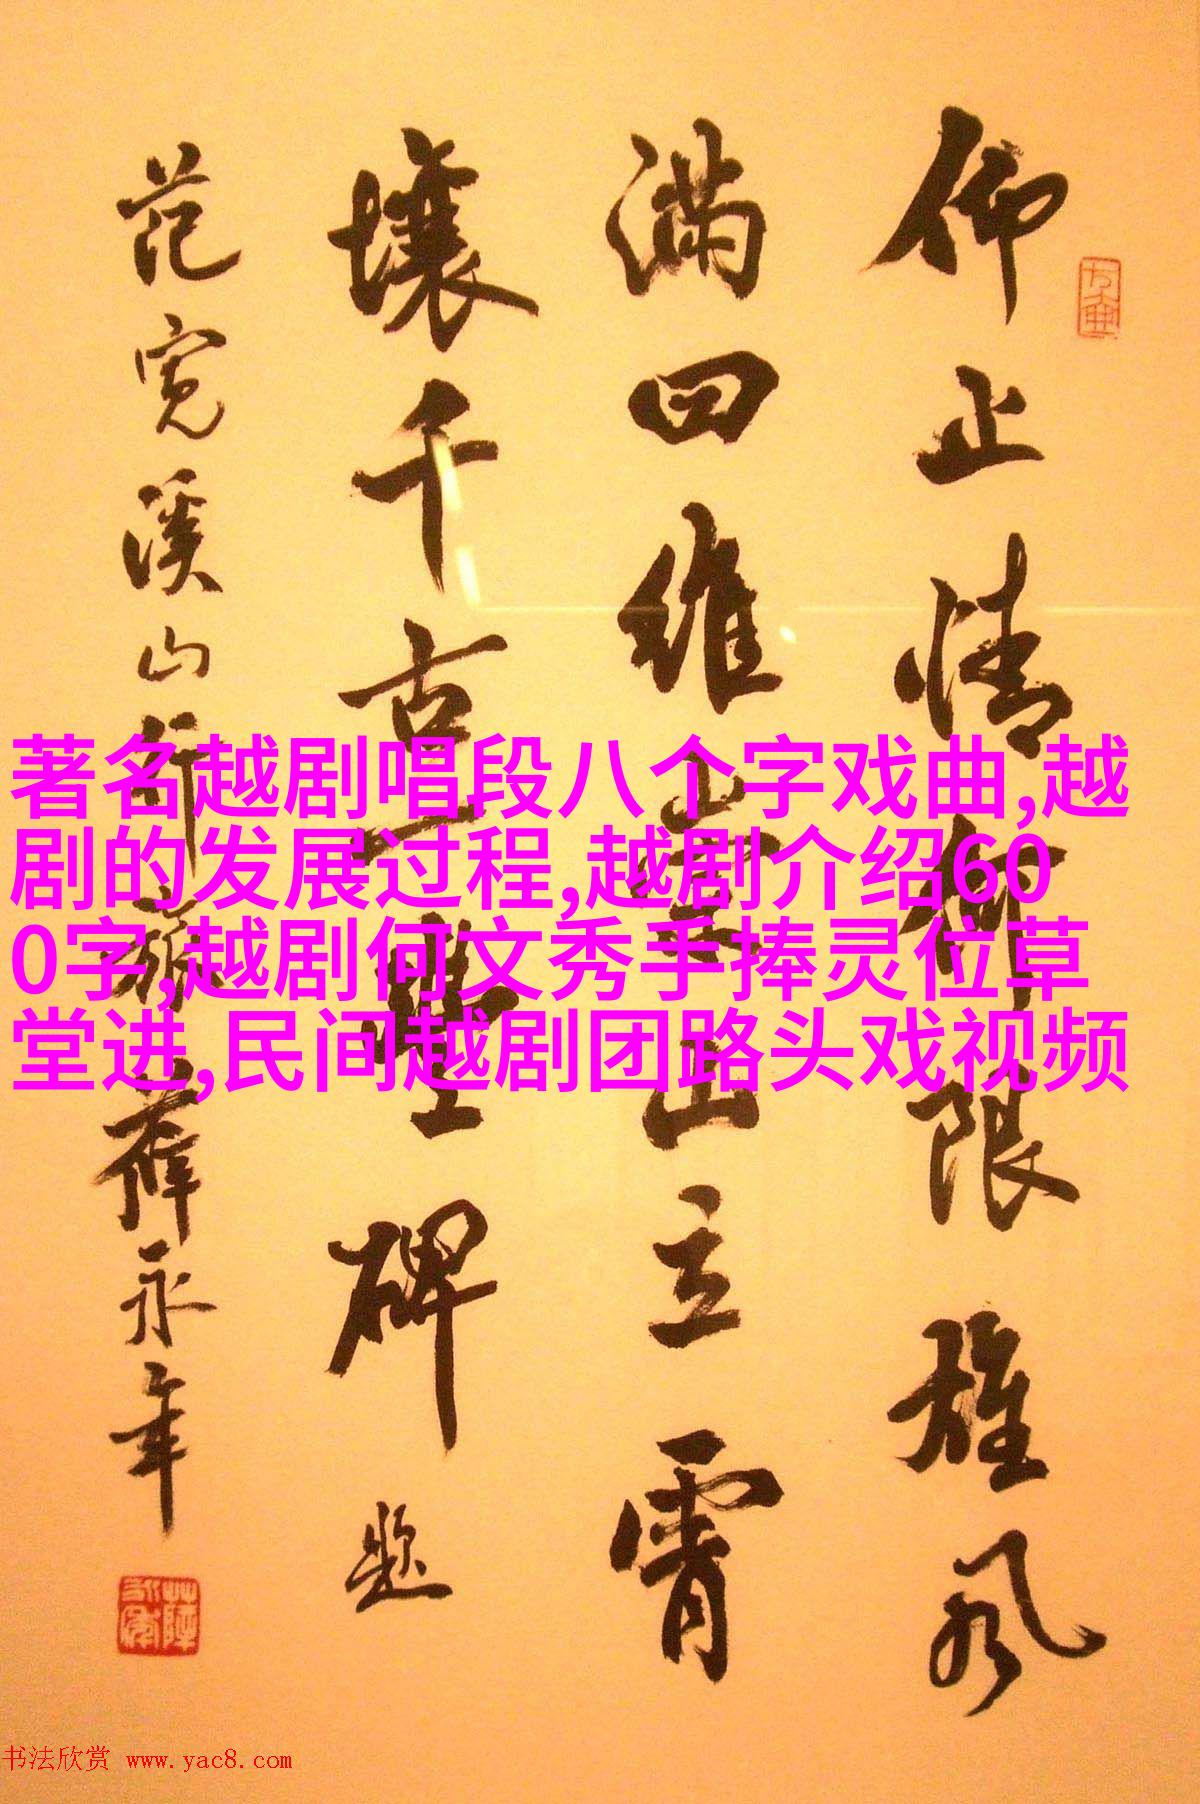 仰止情御限雄风
满四维崇山立霄
壤千古一丰碑
题
范宽溪山行旅
薛永年
著名越剧唱段八个字戏曲,越
剧的发展过程,越剧介绍60
0字,越剧何文秀手捧灵位草
堂进,民间越剧团路头戏视频
书法欣赏 www.yac8.com